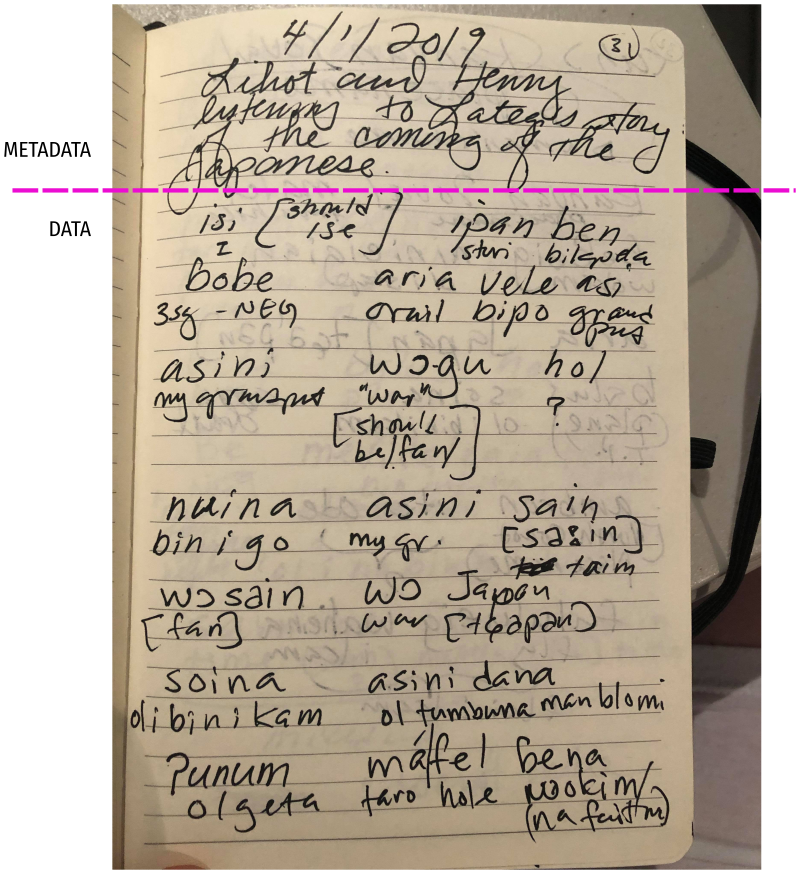 4/1/2019 31
Lihot and Henny
listening to Lategis story
METADATA
of the coming of the
Japanese.
DATA
isi [should ise] ipan ben
I sturi bilapuda
bobe aria vele asi
3sg -NEG orait bipo grand pus
asini wɔ-gu hol
my granspus "war" ?
[should be/fan/]
nuina asini sain
bin i go my gr. [saʔin]
taim
wɔsain wɔ Japan
[fan] war [tɕapan]
soina asini dana
ol i bin i kam ol tumbuna man blo mi
ʔunum máfel bena
olgeta taro hole wokim/
(na fait m)